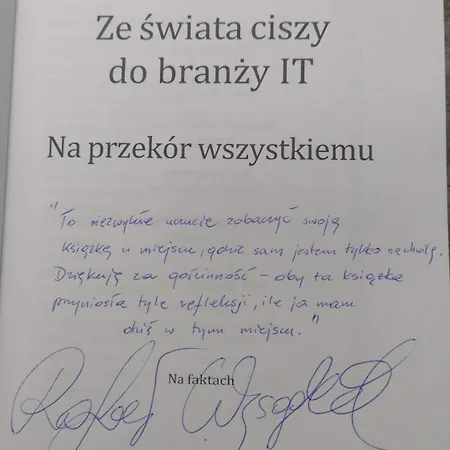 Ze świata ciszy
do branży IT
Na przekór wszystkiemu
"To niezwykłe uczucie zobaczyć swoją
książkę w miejscu, gdzie sam jestem tylko na chwilę.
Dziękuję za gościnność – oby ta książka
przyniosła tyle refleksji, ile ja mam
dziś w tym miejscu."
Na faktach
Rafał